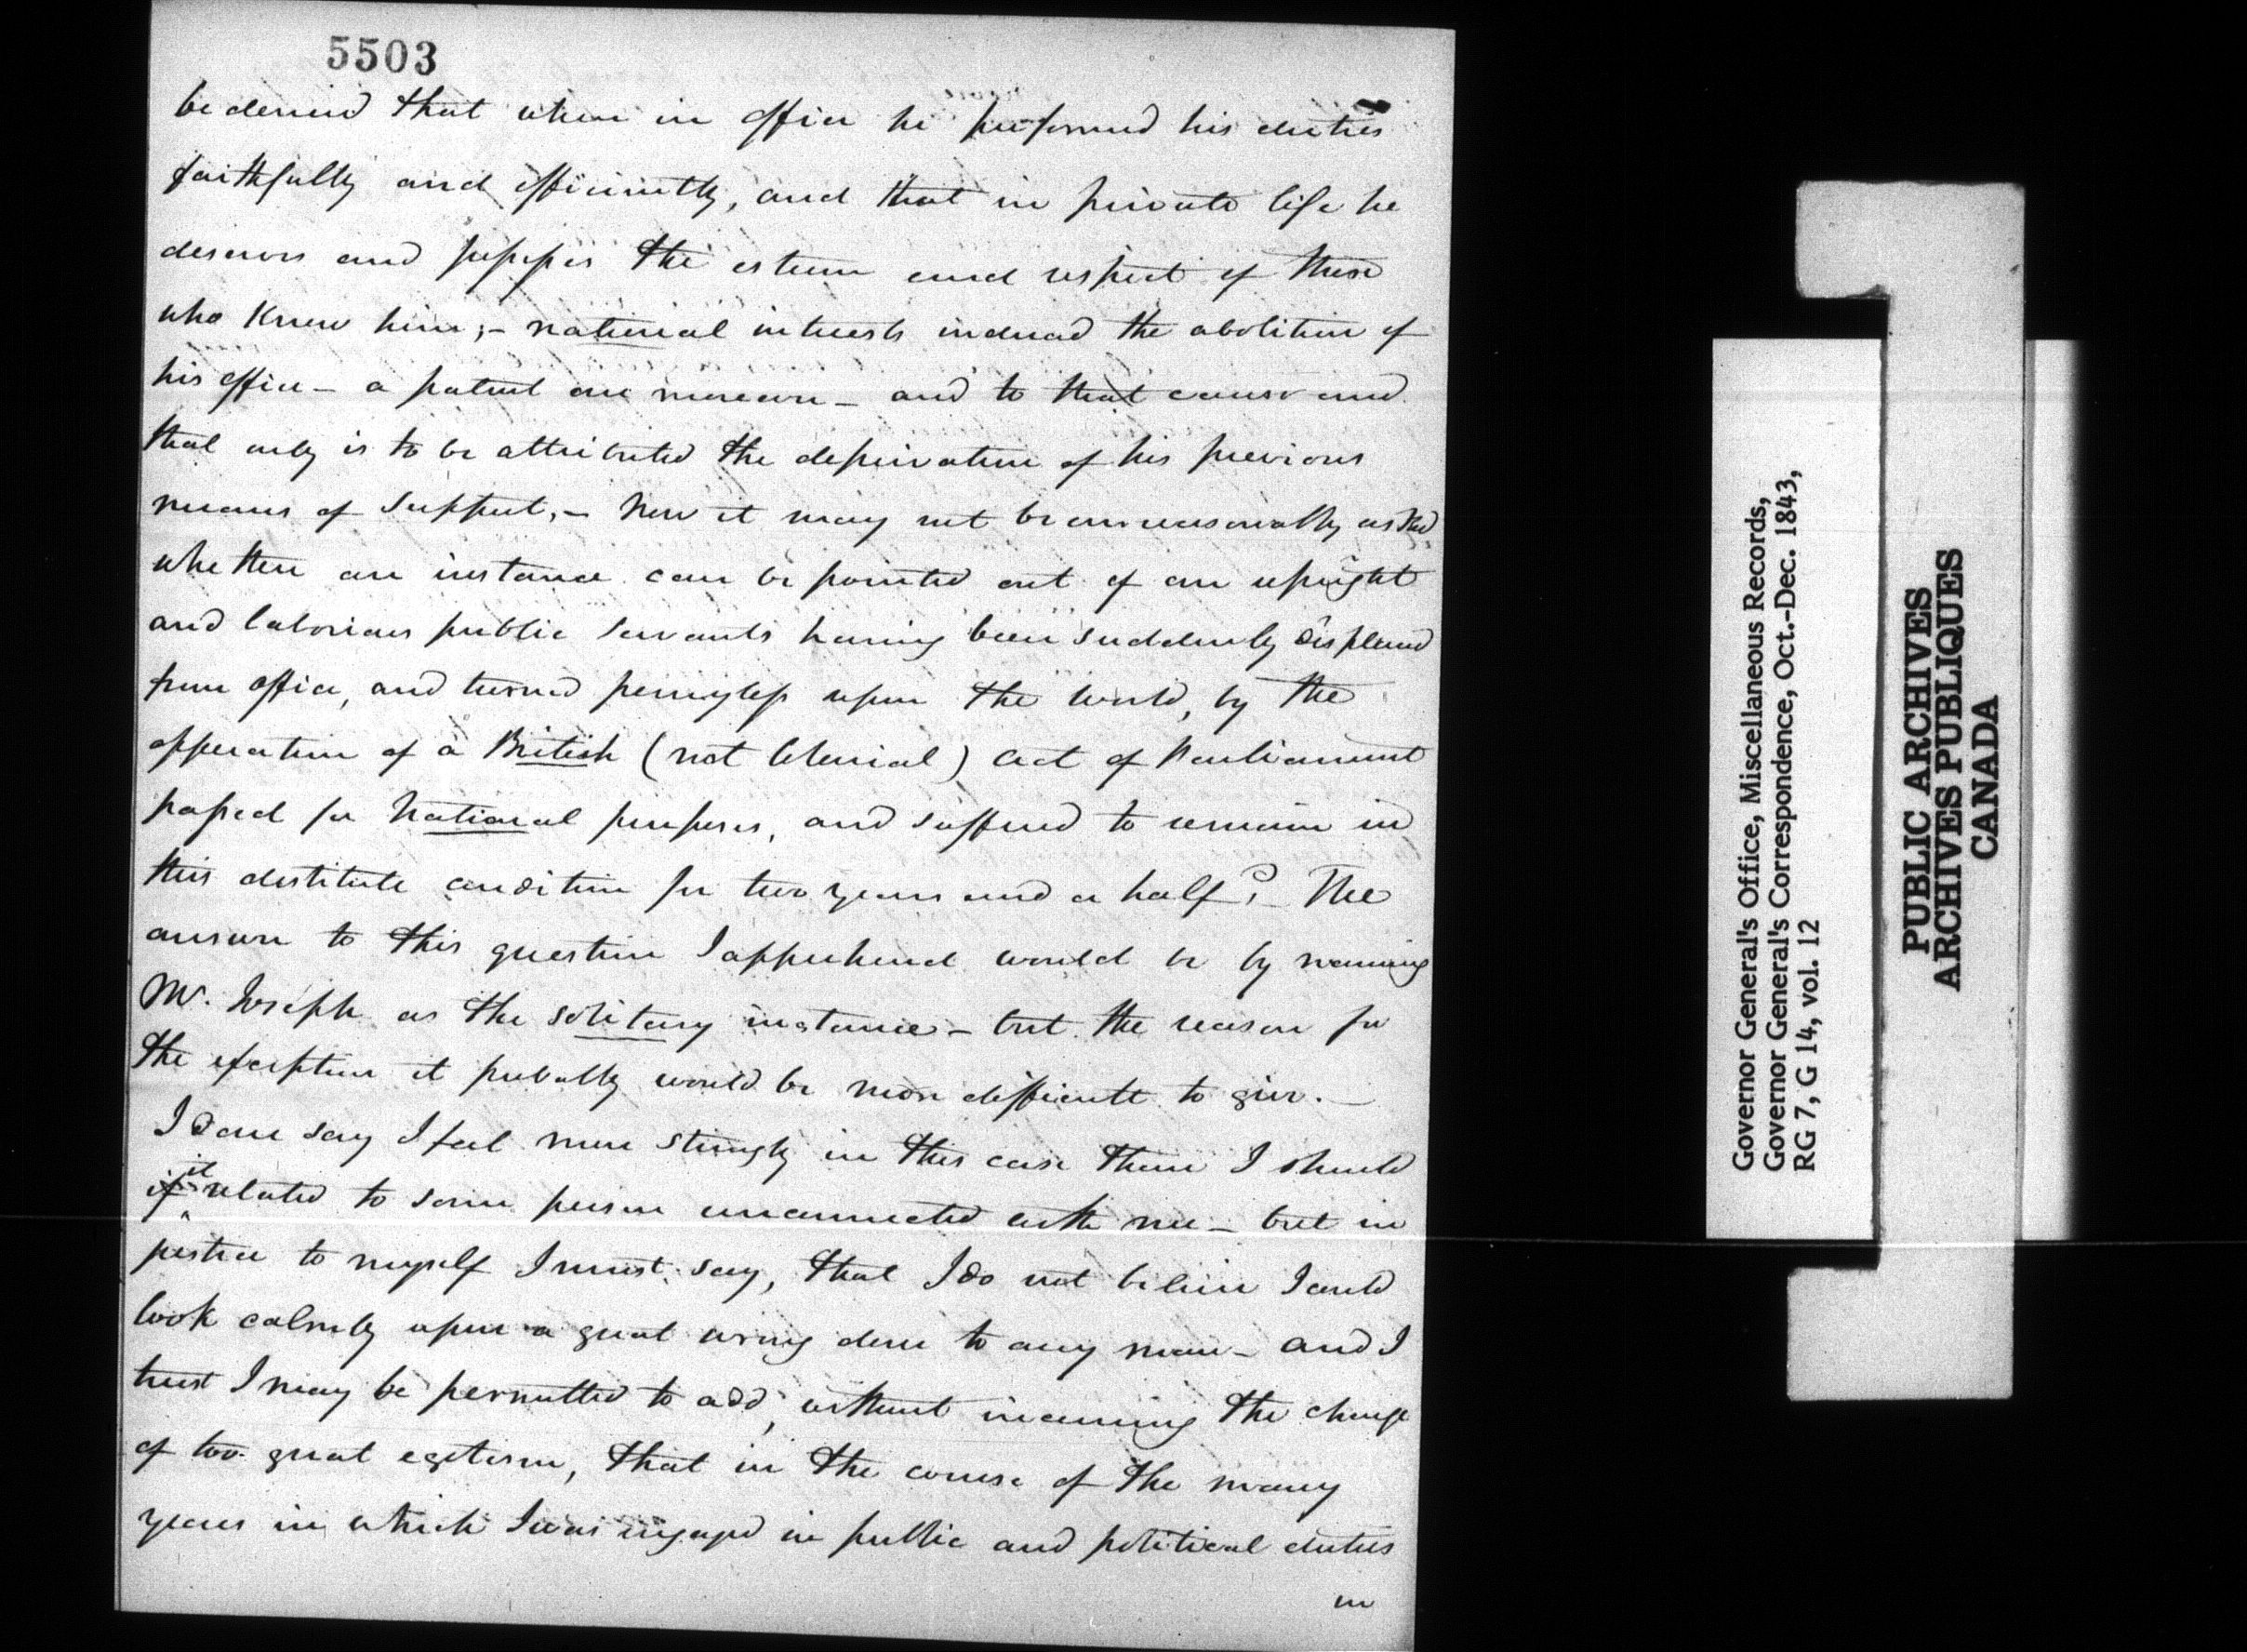 5503
be denied that when in office he performed his duties
faithfully and efficiently, and that in private life he
deserves and possesses the esteem and respect of those
who knew him;- national interests induced the abolition of
his office - a patent one moreover - and to that cause and
that only is to be attributed the deprivation of his previous
means of support,- Now it may not be unreasonably asked
whether an instance can be pointed out of an upright
and laborious public servants having been suddenly displaced
from office, and turned pennyless upon the world, by the
opperation of a British (not Colonial) act of Parliament
passed for National purposes, and suffered to remain in
this destitute condition for two years and a half? - The
answer to this question I apprehend would be by naming
Mr. Joseph as the solitary instance - but the reason for
the exception it probably would be more difficult to give. -
I dare say I feel more strongly in this case than I should
if it related to some person unconnected with me - but in
justice to myself I must say, that I do not believe I could
look calmly upon a great wrong done to any man - and I
trust I may be permitted to add, without incurring the charge
of too great egotism, that in the course of the many
years in which I was engaged in public and political duties
in
Governor General's Office, Miscellaneous Records,
Governor General's Correspondence, Oct.-Dec. 1843,
RG 7, G 14, vol. 12
PUBLIC ARCHIVES
ARCHIVES PUBLIQUES
CANADA